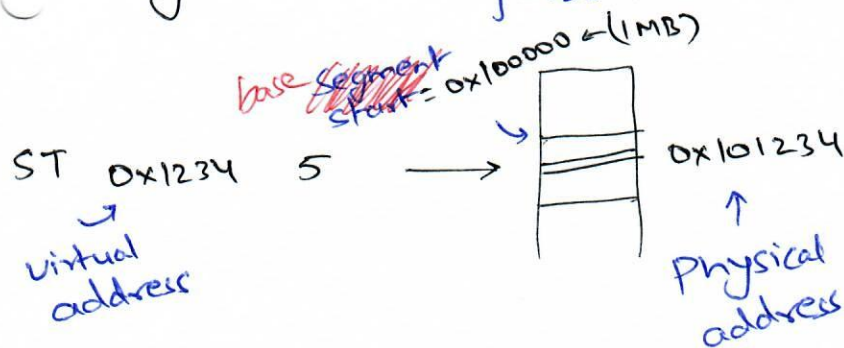 base segment
start = 0x100000 ← (1MB)
ST 0x1234 5 → 0x101234
virtual
address
Physical
address